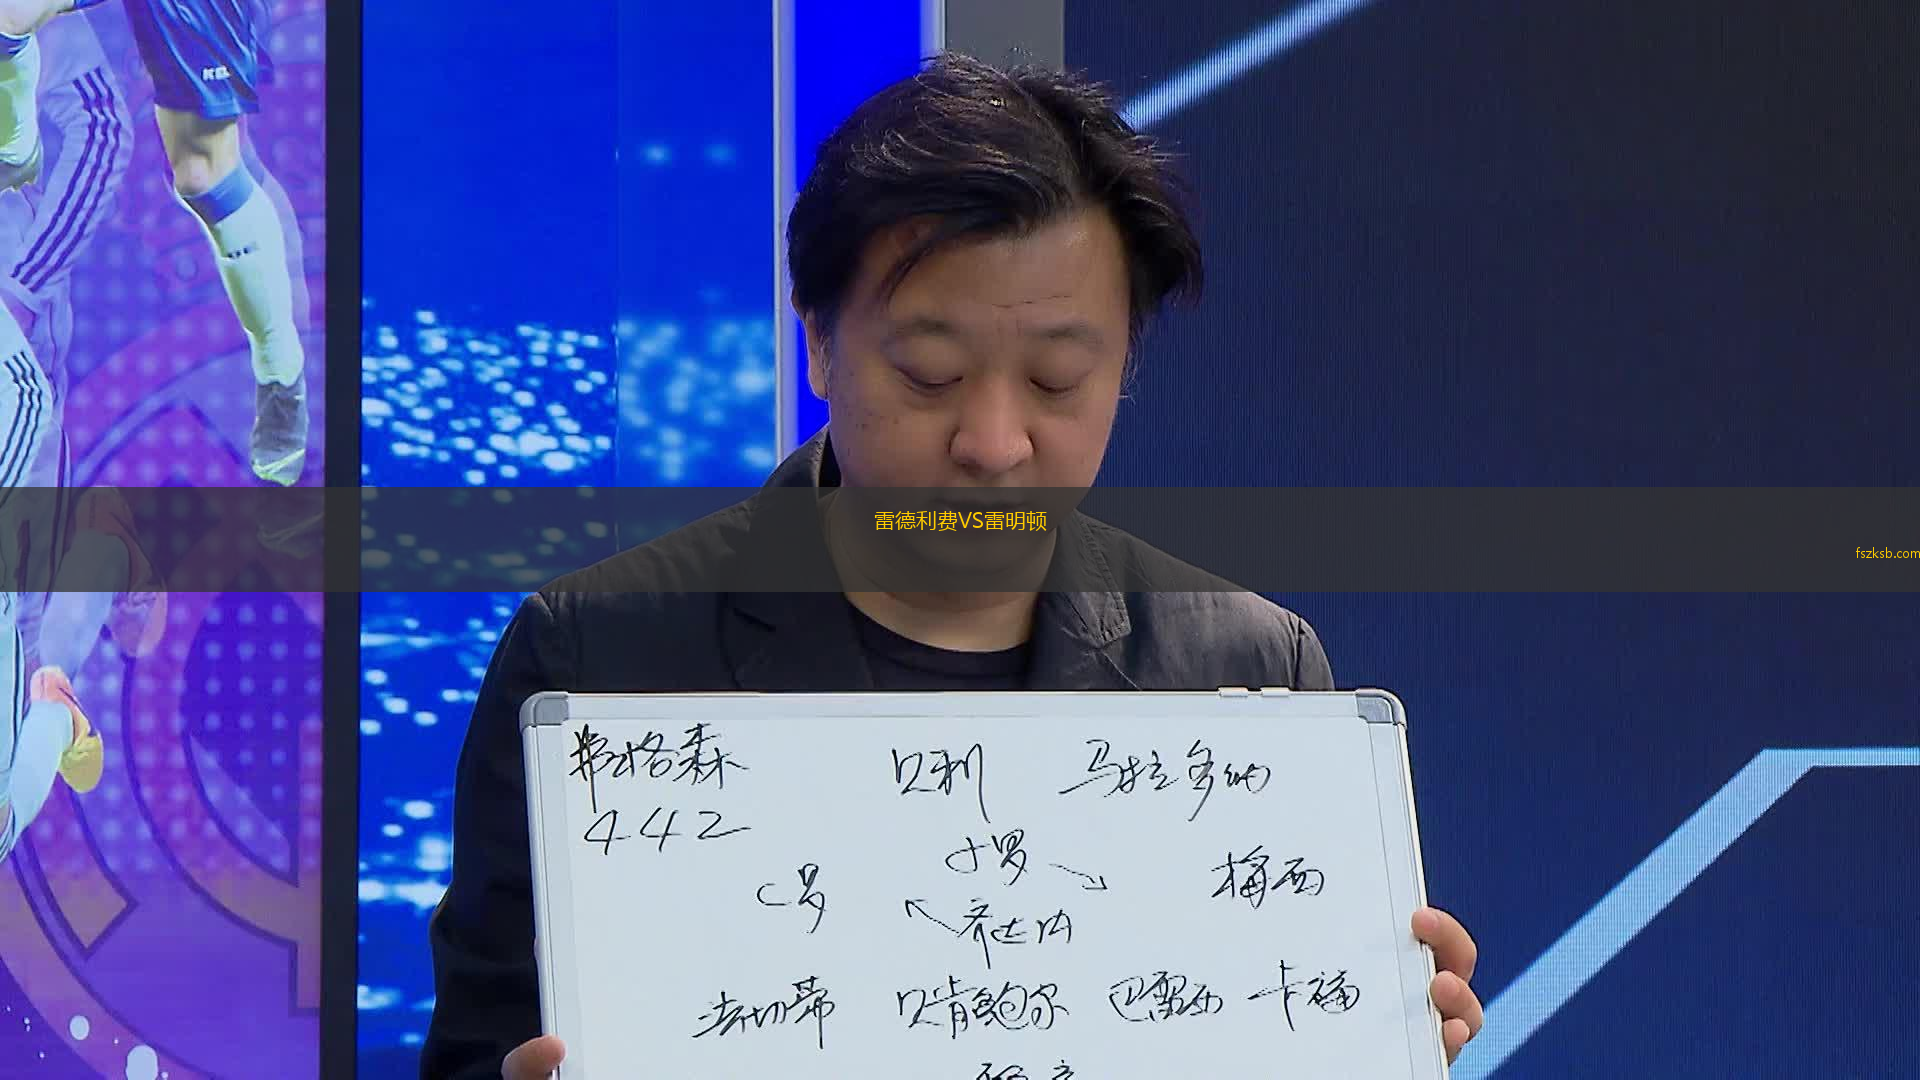 雷德利费VS雷明顿
fszksb.com
弗格森 贝利 马拉多纳
442
小罗
C罗 梅西
齐达内
法切蒂 贝肯鲍尔 巴雷西 卡福